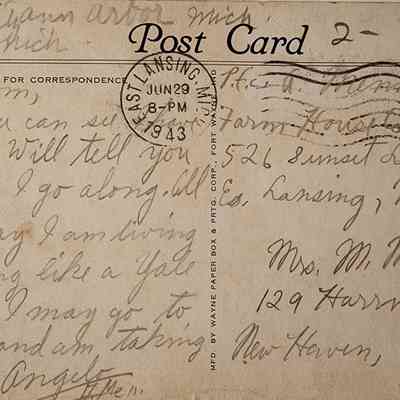 Ann Arbor Mich.
Mich.
Post Card
2-
FOR CORRESPONDENCE
EAST LANSING, MICH.
JUN 29
8-PM
1943
you can see
Will tell you
I go along. I'll
say I am living
like a Yale
I may go to
and am taking
Angelo
MFD. BY WAYNE PAPER BOX & PRTG. CORP., FORT WAYNE, IND
Pfc. A.
Farm House
526 Sunset
E. Lansing,
Mrs. M.
129
New Haven,